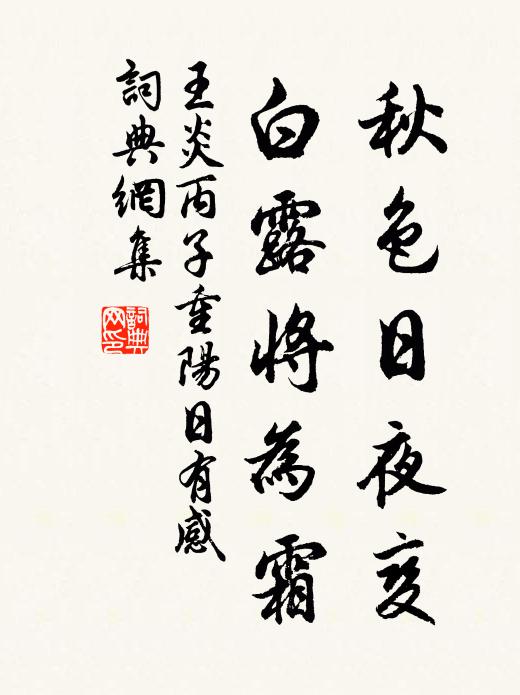 秋色日夜变
白露將為霜
王炎丙子重陽日有感
詞典網集
詞典网印